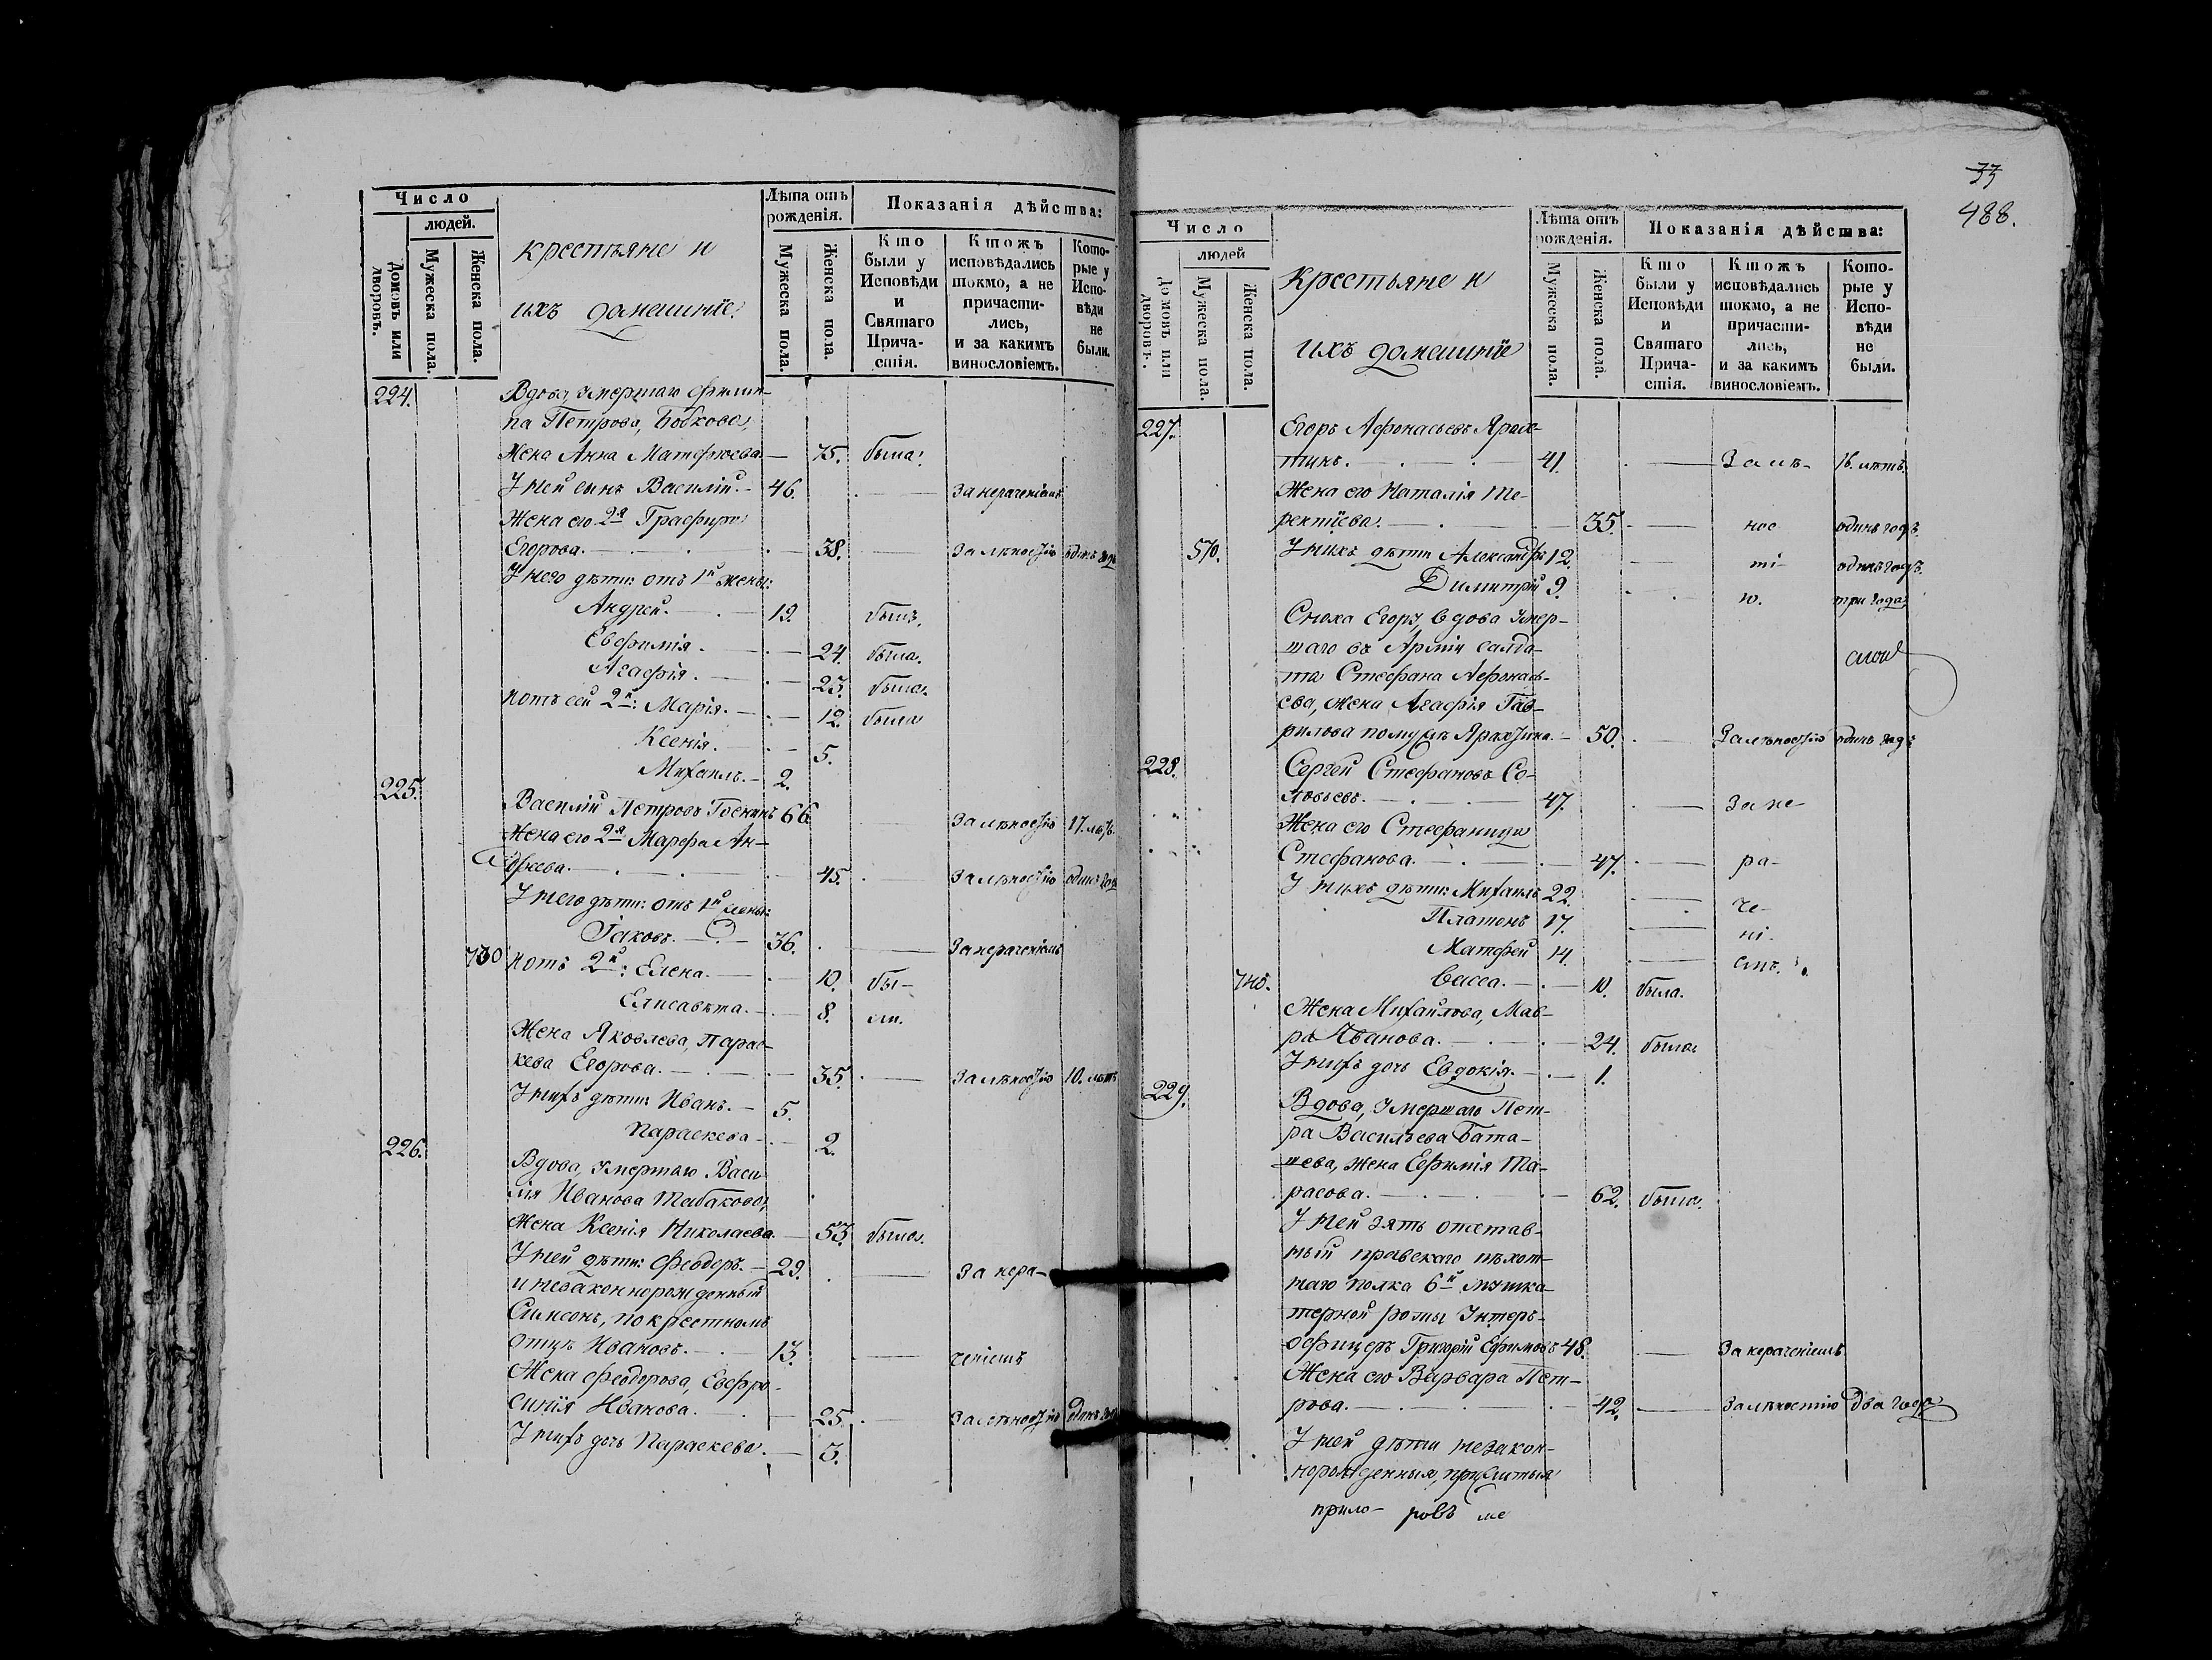 Число
людей.
Домовъ или дворовъ.
Мужеска пола.
Женска пола.
крестьяне и
ихъ домашніе
Лѣта отъ рожденія.
Мужеска пола.
Женска пола.
Показанія дѣйства:
Кто были у Исповѣди и Святаго Причастія.
Ктожъ исповѣдались токмо, а не причастились, и за какимъ винословіемъ.
Которые у Исповѣди не были.
224. Вдова, умершаго Филип-
па Петрова, Бобкова,
Жена Анна Матфѣева. — 75. была.
У ней сынъ Василій. — 46. — за нераченіемъ
Жена его 2я Графира
Егорова. — 38. — за лѣностію одинъ годъ
У него дѣти: отъ 1й жены:
Андрей. — 19. былъ.
Евфимія. — 24. была.
Агафія. — 23. была.
и отъ сей 2й: Марія. — 12. была
Ксенія. — 5.
Михаилъ. — 2.
225. Василій Петровъ 66. — за лѣностію 17. лѣтъ
Жена его 2я Марфа Ан-
дреева. — 45. — за лѣностію одинъ годъ
У него дѣти: отъ 1й жены:
Іаковъ. — 36. — за нераченіемъ
730 и отъ 2й: Елена. — 10. бы-
Елисавета. — 8. ли.
Жена Яковлева, Парас-
кева Егорова. — 35. — за лѣностію 10. лѣтъ
У нихъ дѣти: Иванъ. — 5.
Параскева — 2.
226. Вдова, умершаго Васи-
лія Иванова Табакова,
Жена Ксенія Николаева. — 53. была.
У ней дѣти: Феодоръ. — 29. — за нера-
и незаконнорожденный
Симеонъ, по крестномъ
отцѣ Ивановъ. — 13. — ченіемъ
Жена Феодорова, Евфро-
синія Иванова. — 25. — за лѣностію одинъ годъ
У нихъ дочь Параскева. — 3.
33
488.
Число
людей
Домовъ или дворовъ.
Мужеска пола.
Женска пола.
крестьяне и
ихъ домашніе
Лѣта отъ рожденія.
Мужеска пола.
Женска пола.
Показанія дѣйства:
Кто были у Исповѣди и Святаго Причастія.
Ктожъ исповѣдались токмо, а не причастились, и за какимъ винословіемъ.
Которые у Исповѣди не были.
227. Егоръ Афонасьевъ
41. — За лѣ- 16. лѣтъ
Жена его Наталія Те-
рентіева. — 35. — нос один годъ.
570. У нихъ дѣти Александръ 12. — ті- одинъ годъ.
Димитрій 9. ю. три года
Сноха Егору, вдова умер-
шаго въ Арміи салда-
та Стефана Афонась-
ева, жена Агафія Гав-
рилова по мужѣ — 50. — За лѣностію одинъ годъ
228. Сергей Стефановъ Со-
ловьевъ. — 47. — За не-
Жена его Стефанида
Стефанова. — 47. — ра-
У нихъ дѣти: Михаилъ 22. — че-
Платонъ 17. — ні-
Матфей 14. — емъ.
740. Васса. — 10. была.
Жена Михайлова, Мав-
ра Иванова. — 24. была
У нихъ дочь Евдокія. — 1.
229. Вдова, умершаго Пет-
ра Васильева Бата-
шева, жена Евфимія Та-
расова. — 62. была.
У ней зять отстав-
ный пѣхот-
наго полка 6й мушка-
терной роты Унтеръ-
офицеръ Григорій Ефимовъ 48. — За нераченіемъ
Жена его Варвара Пет-
рова. — 42. — За лѣностію два года
У ней дѣти незакон-
норожденныя, прижитыя